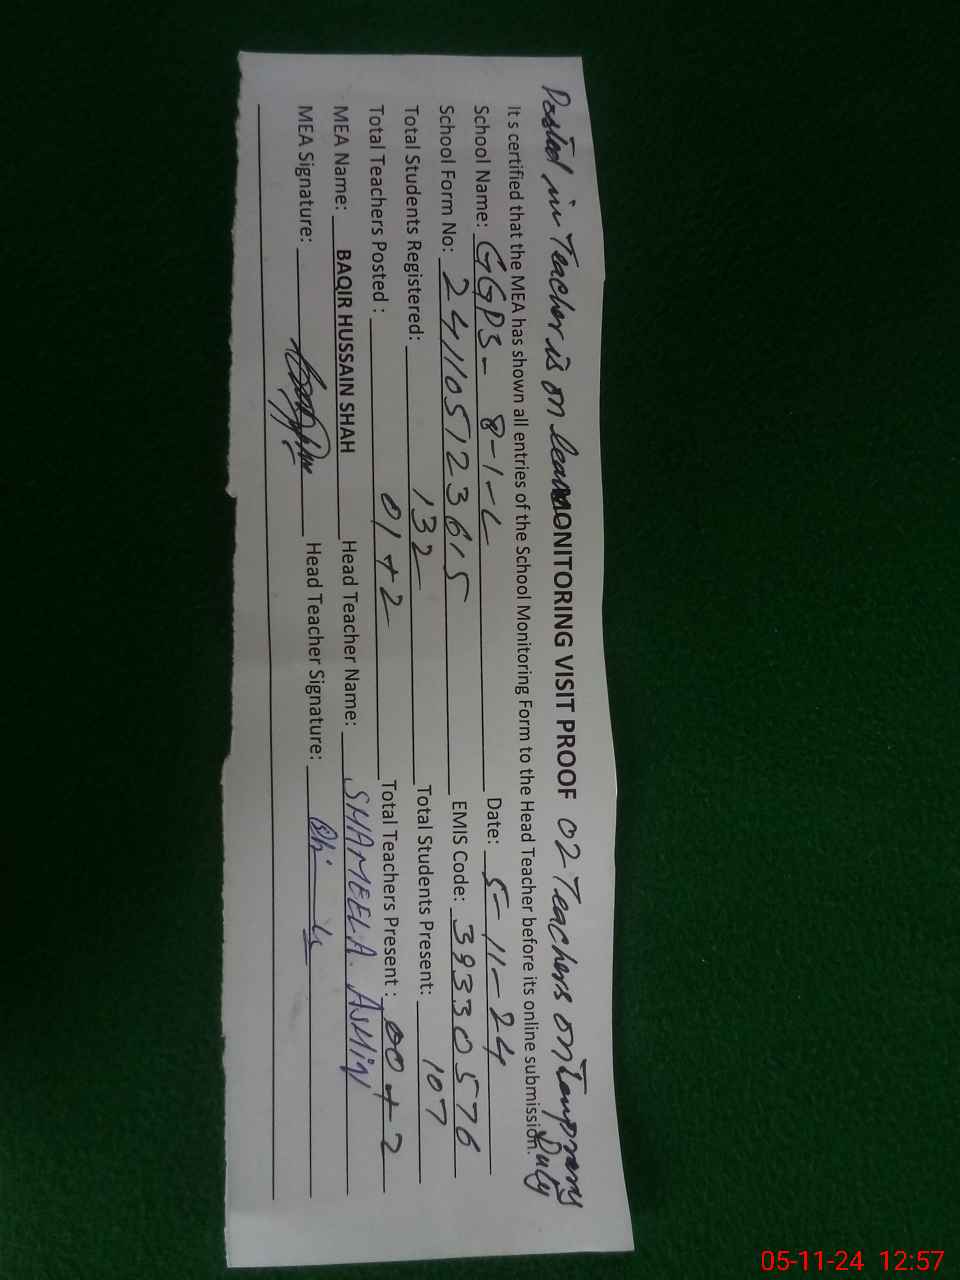 Posted in Teacher is on leave MONITORING VISIT PROOF 02 Teachers on Temprary Duty
It s certified that the MEA has shown all entries of the School Monitoring Form to the Head Teacher before its online submission.
School Name: GGPS- 8-1-L Date: 5-11-24
School Form No: 241105123615 EMIS Code: 39330576
Total Students Registered: 132 Total Students Present: 107
Total Teachers Posted : 01+2 Total Teachers Present : 00+2
MEA Name: BAQIR HUSSAIN SHAH Head Teacher Name: SHAMEELA.
MEA Signature: Head Teacher Signature:
05-11-24 12:57